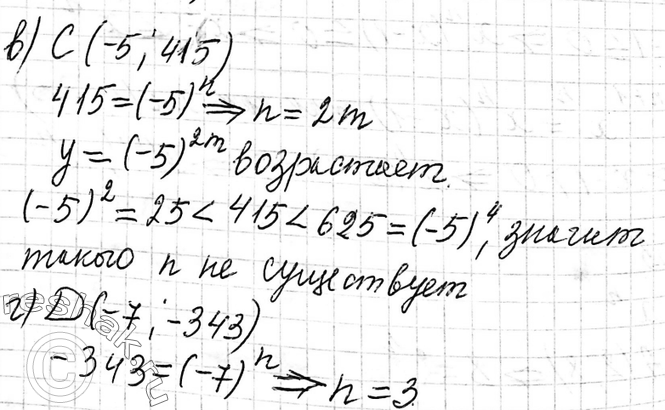 в) C (-5; 415)
415 = (-5)ⁿ ⇒ n = 2m
y = (-5)²ᵐ возрастает.
(-5)² = 25 < 415 < 625 = (-5)⁴, значит
такого n не существует
г) D (-7; -343)
-343 = (-7)ⁿ ⇒ n = 3.
reshak.ru